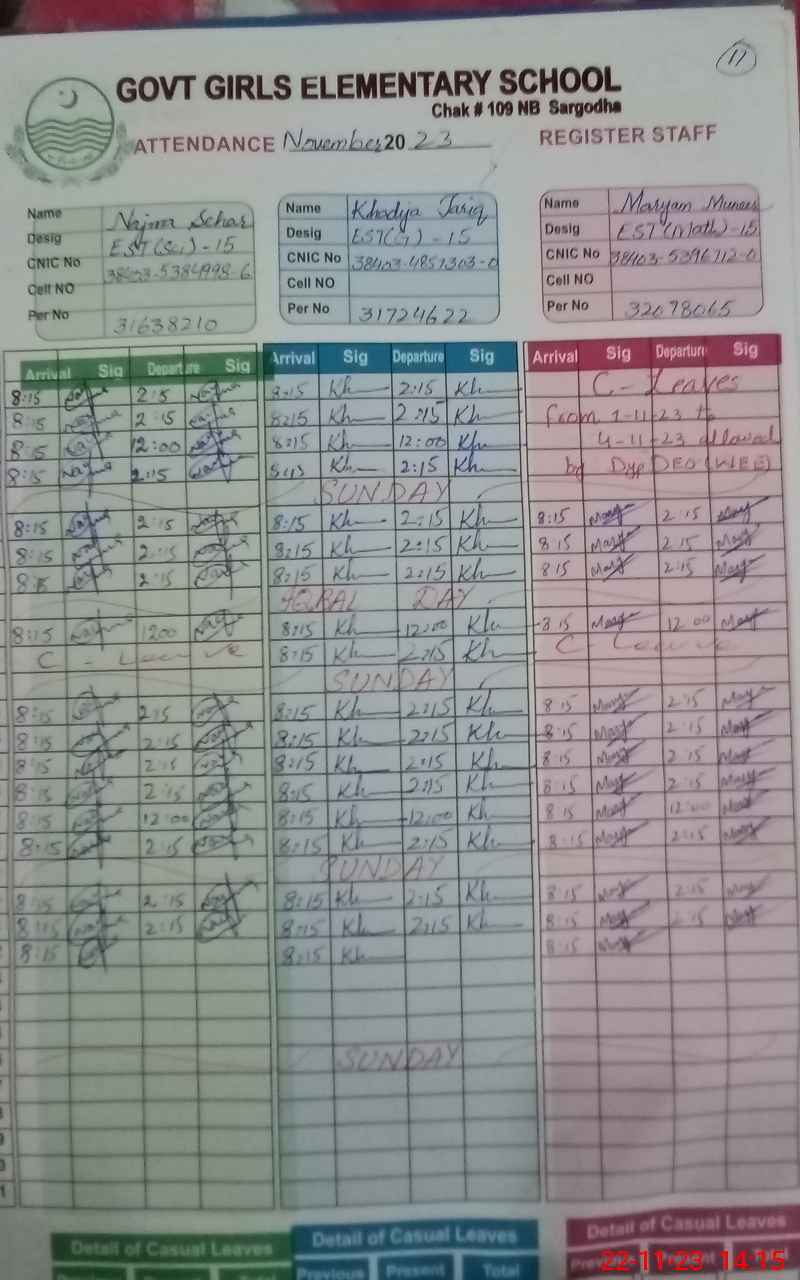 17
GOVT GIRLS ELEMENTARY SCHOOL
Chak # 109 NB Sargodha
ATTENDANCE November 2023 REGISTER STAFF
Name Najma Sehar
Desig EST(Sci) - 15
CNIC No 38403-5384998-6
Cell NO
Per No 31638210
Name Khadija Tariq
Desig EST(G) - 15
CNIC No 38403-4851303-0
Cell NO
Per No 31724622
Name Maryam Muneer
Desig EST(Math) - 15
CNIC No 38403-5396712-0
Cell NO
Per No 32078065
Arrival Sig Departure Sig Arrival Sig Departure Sig Arrival Sig Departure Sig
8:15 2:15 8:15 Kh 2:15 Kh C - Leaves
8:15 2:15 8:15 Kh 2:15 Kh from 1-11-23 to
8:15 12:00 8:15 Kh 12:00 Kh 4-11-23 allowed
8:15 2:15 8:15 Kh 2:15 Kh by Dyp DEO (WEE)
SUNDAY
8:15 2:15 8:15 Kh 2:15 Kh 8:15 2:15
8:15 2:15 8:15 Kh 2:15 Kh 8 15 2 15
8:15 2:15 8:15 Kh 2:15 Kh 8 15 2:15
IQBAL DAY
8:15 1200 8:15 Kh 12:00 Kh 8 15 12 00
C - Leave 8:15 Kh 2:15 Kh C - Leave
SUNDAY
8:15 2:15 8:15 Kh 2:15 Kh 8 15 2:15
8:15 2:15 8:15 Kh 2:15 Kh 8:15 2:15
8:15 2:15 8:15 Kh 2:15 Kh 8:15 2:15
8:15 2:15 8:15 Kh 2:15 Kh 8:15 2:15
8:15 12:00 8:15 Kh 12:00 Kh 8 15 12:00
8:15 2:15 8:15 Kh 2:15 Kh 8:15 2:15
SUNDAY
8:15 2:15 8:15 Kh 2:15 Kh 8:15 2:15
8:15 2:15 8:15 Kh 2:15 Kh 8:15 2:15
8:15 8:15 Kh 8:15
SUNDAY
Detail of Casual Leaves Detail of Casual Leaves Detail of Casual Leaves
Previous Present Total
22-11-23 14:15